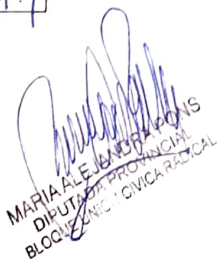 MARIA ALEJANDRA PONS
DIPUTADA PROVINCIAL
BLOQUE UNION CIVICA RADICAL